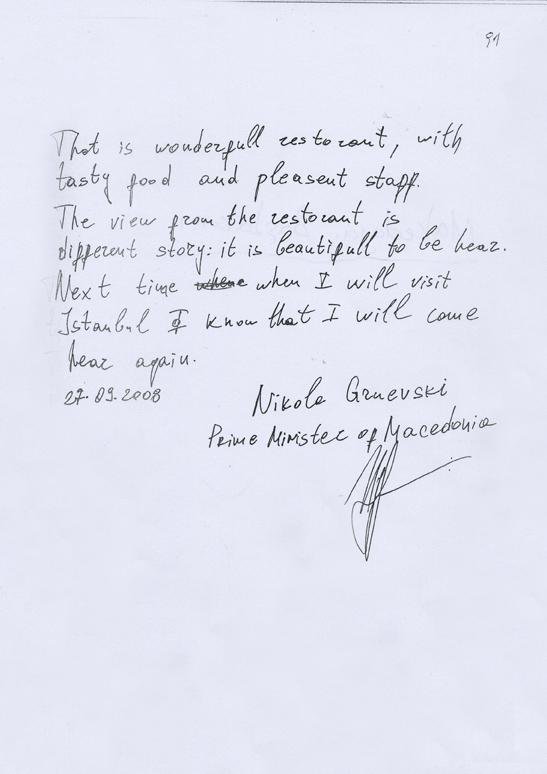 91
That is wonderfull restorant, with
tasty food and pleasent staff.
The view from the restorant is
different story: it is beautifull to be hear.
Next time where when I will visit
Istanbul I know that I will come
hear again.
27.09.2008
Nikola Gruevski
Prime Minister of Macedonia